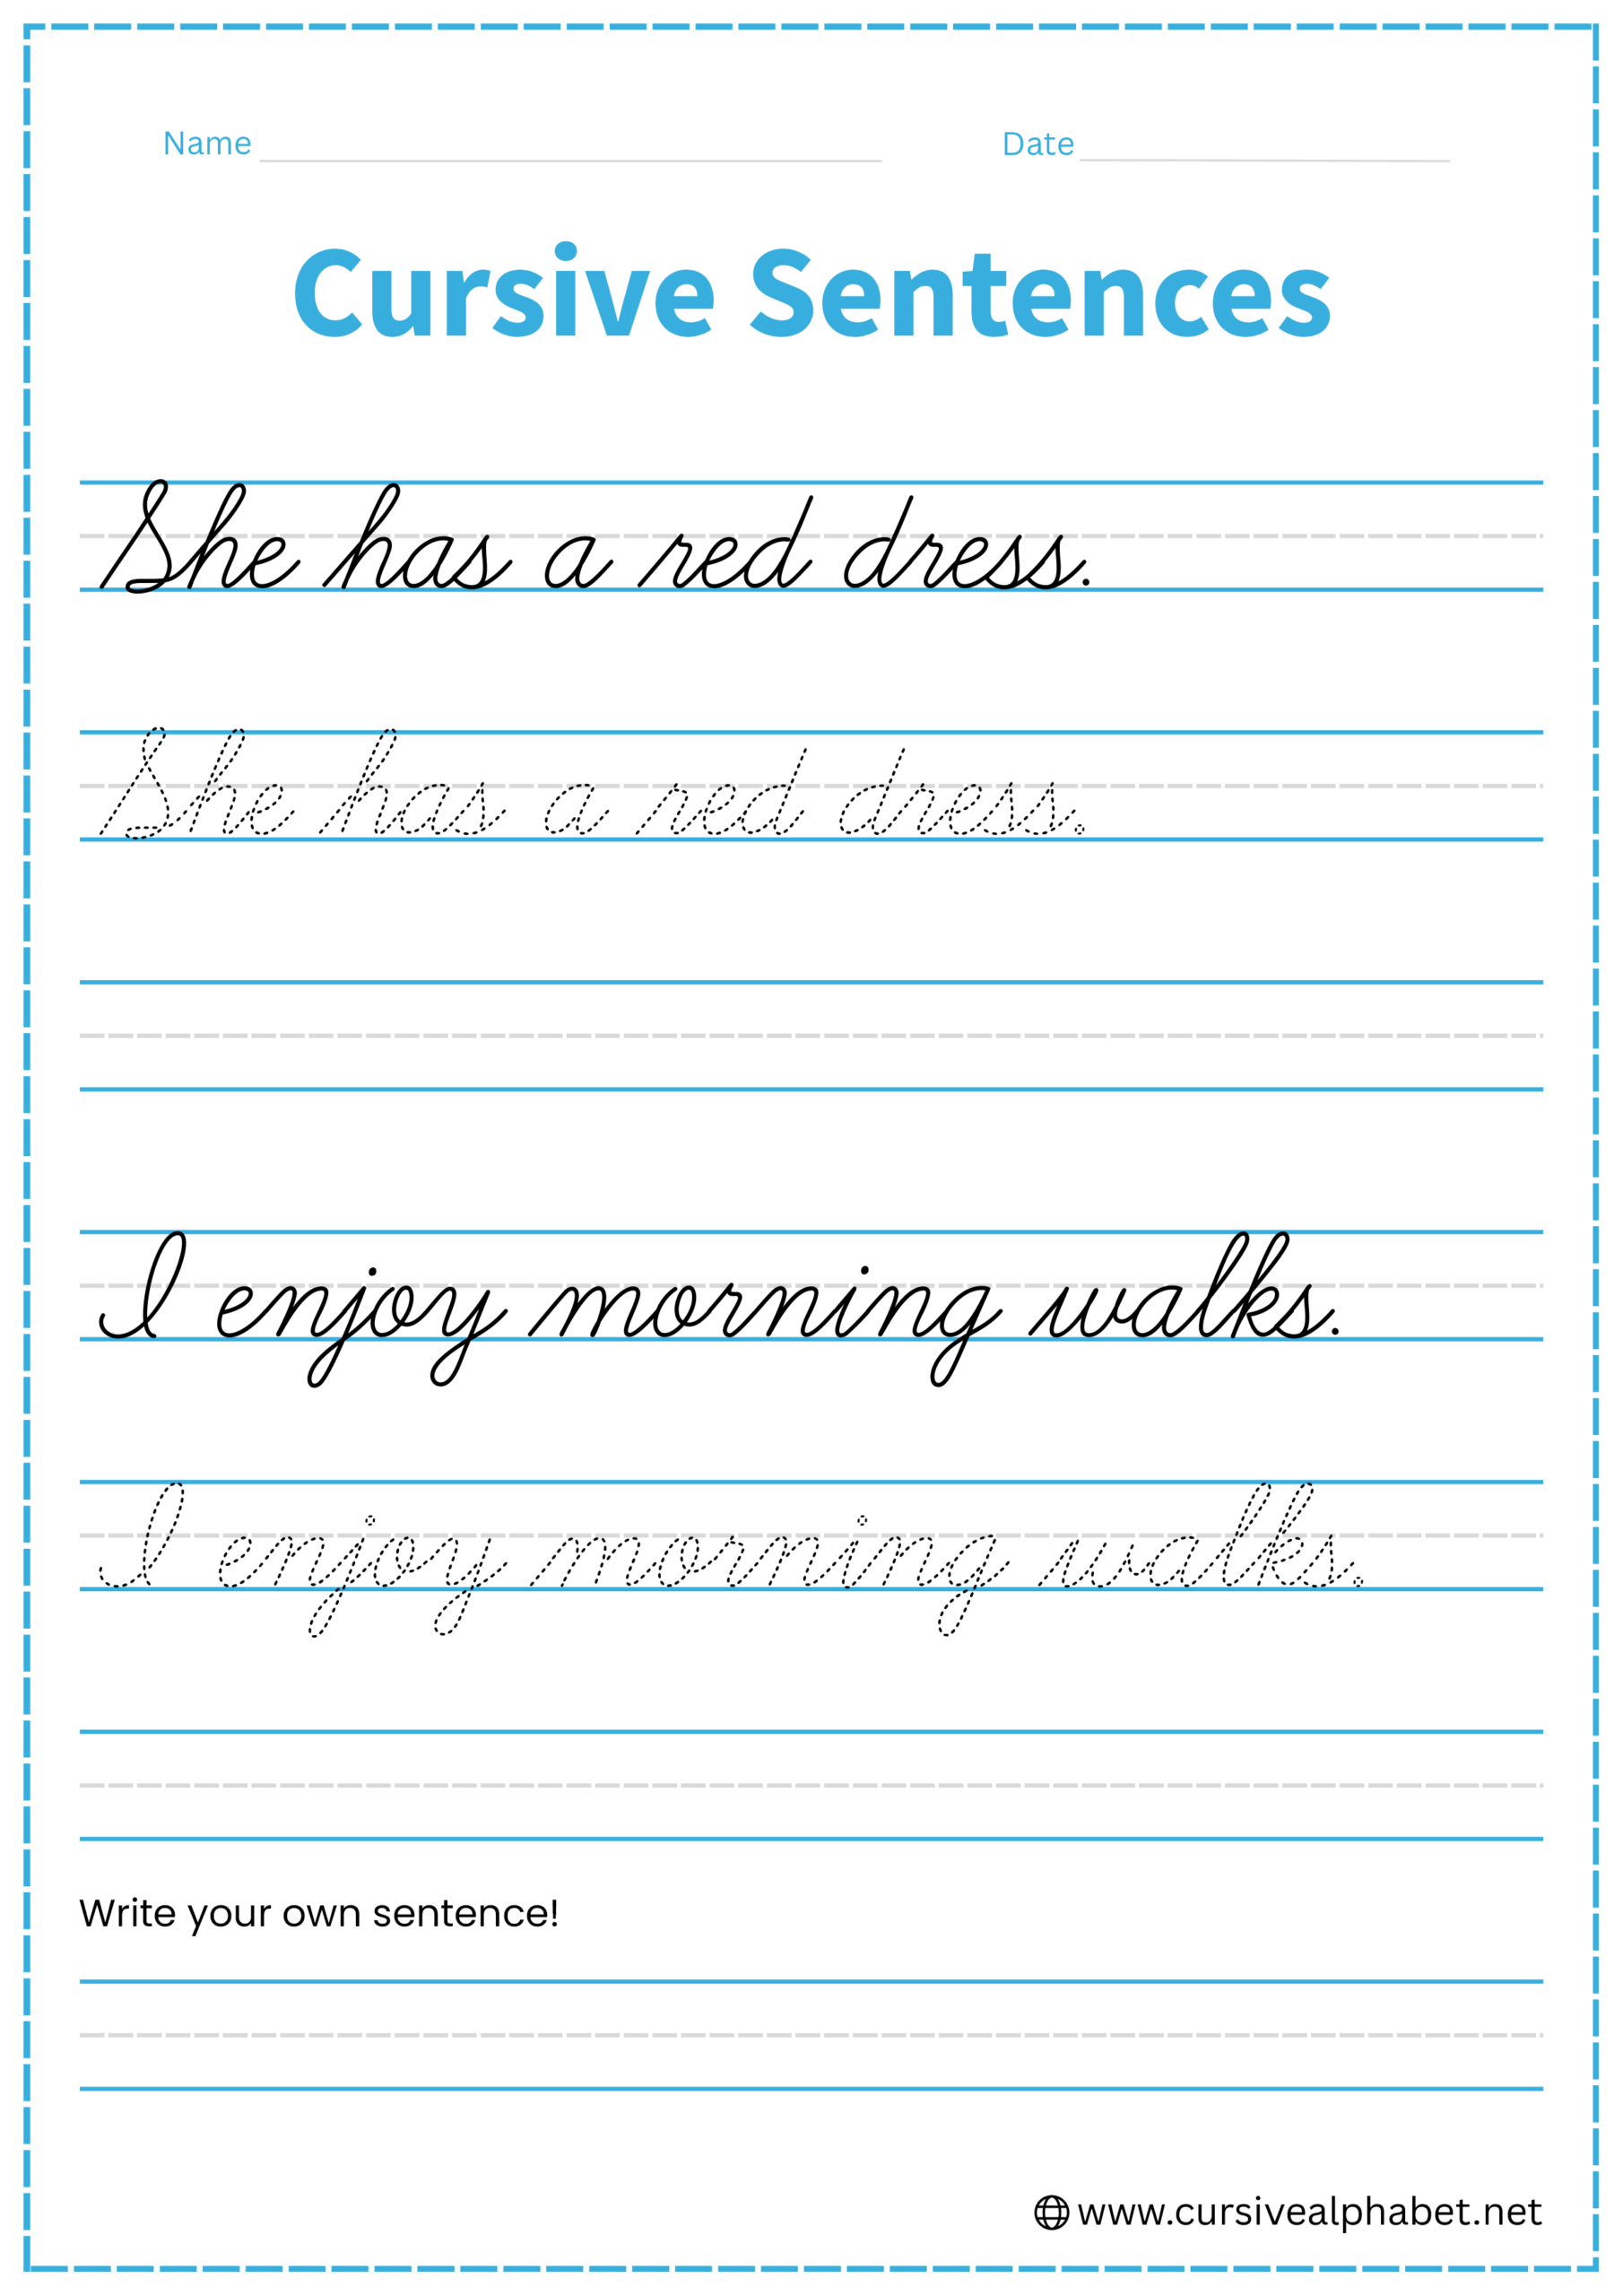 Name Date
Cursive Sentences
She has a red dress.
She has a red dress.
I enjoy morning walks.
I enjoy morning walks.
Write your own sentence!
www.cursivealphabet.net